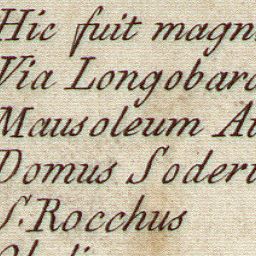 Hic fuit magn
Via Longobard
Mausoleum Au
Domus Soderi
S. Rocchus